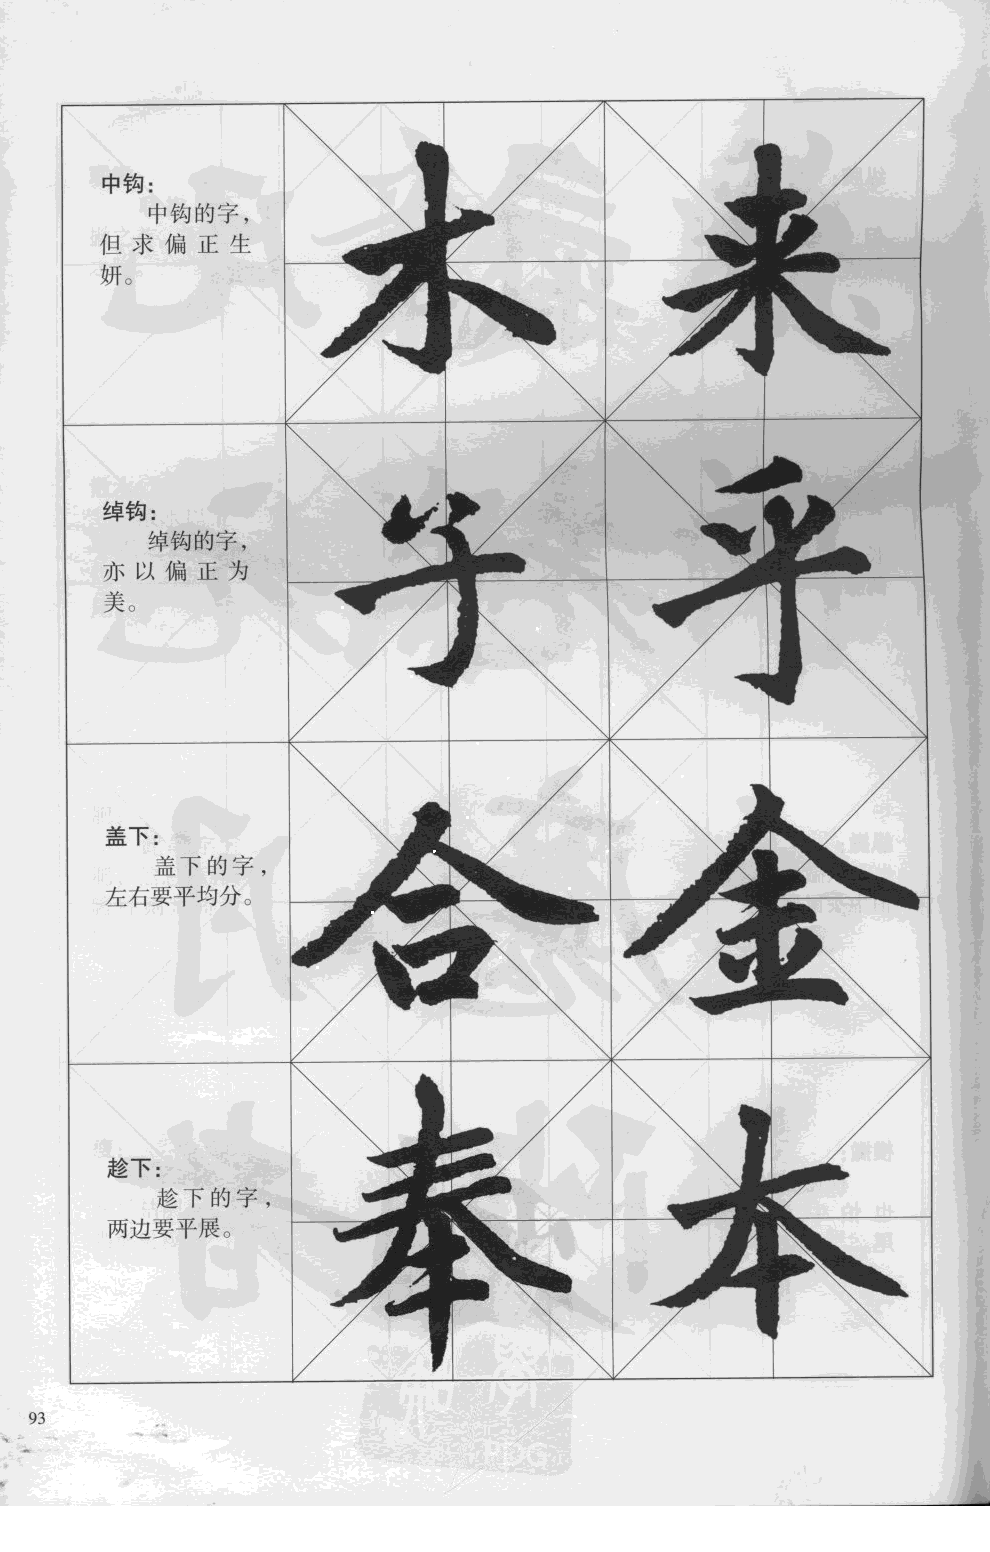 中钩：
中钩的字，
但求偏正生
妍。
木 来
绰钩：
绰钩的字，
亦以偏正为
美。
乎
盖下：
盖下的字，
左右要平均分。
合 金
趁下：
趁下的字，
两边要平展。
奉 本
93